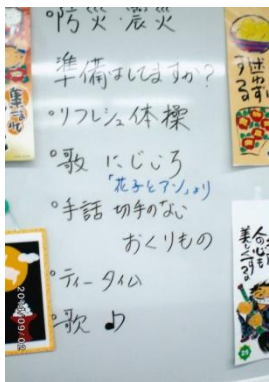 °防災・震災
準備はしてますか?
°リフレシュ体操
°歌 にじいろ
「花子とアン」より
°手話 切手のない
おくりもの
°ティータイム
°歌♪
人の心も
美しくする
25